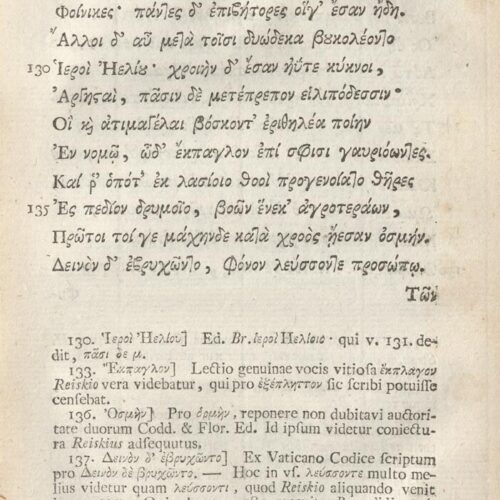 Φοίνικες· πάντες δ' ἐπιβήτορες οἵγ' ἔσαν ἤδη.
Ἄλλοι δ' αὖ μετὰ τοῖσι δυώδεκα βυκολέοντο
130 Ἱεροὶ Ἠελίου· χροιὴν δ' ἔσαν ἠΰτε κύκνοι,
Ἀργησταὶ, πᾶσιν δὲ μετέπρεπον εἰλιπόδεσσιν·
Οἳ κỳ ἀτιμαγέλαι βόσκοντ' ἐριθηλέα ποίην
Ἐν νομῷ, ὧδ' ἔκπαγλον ἐπὶ σφίσι γαυριόωντες.
Καί ῥ' ὁπότ' ἐκ λασίοιο θοοὶ προγενοίατο θῆρες
135 Ἐς πεδίον δρυμοῖο, βοῶν ἕνεκ' ἀγροτεράων,
Πρῶτοι τοί γε μάχηνδε κατὰ χροὸς ᾔεσαν ὀσμήν.
Δεινὸν δ' ἐβρυχῶντο, φόνον λεύσσοντε προσώπῳ.
Τῶν
130. Ἱεροὶ Ἠελίου] Ed. Br. ἱεροὶ Ἠελίοιο· qui v. 131. de-
dit, πᾶσι δὲ μ.
133. Ἔκπαγλον] Lectio genuinae vocis vitiosa ἔκπλαγον
Reiskio vera videbatur, qui pro ἐξέπληττον sic scribi potuisse
censebat.
136. Ὀσμὴν] Pro ὁρμὴν, reponere non dubitavi auctori-
tate duorum Codd. & Flor. Ed. Id ipsum videtur coniectu-
ra Reiskius adsequutus.
137. Δεινὸν δ' ἐβρυχῶντο] Ex Vaticano Codice scriptum
pro Δεινὸν δὲ βρυχῶντο. — Hoc in vs. λεύσσοντε multo me-
lius videtur quam λεύσσοντι, quod Reiskio aliquando venit